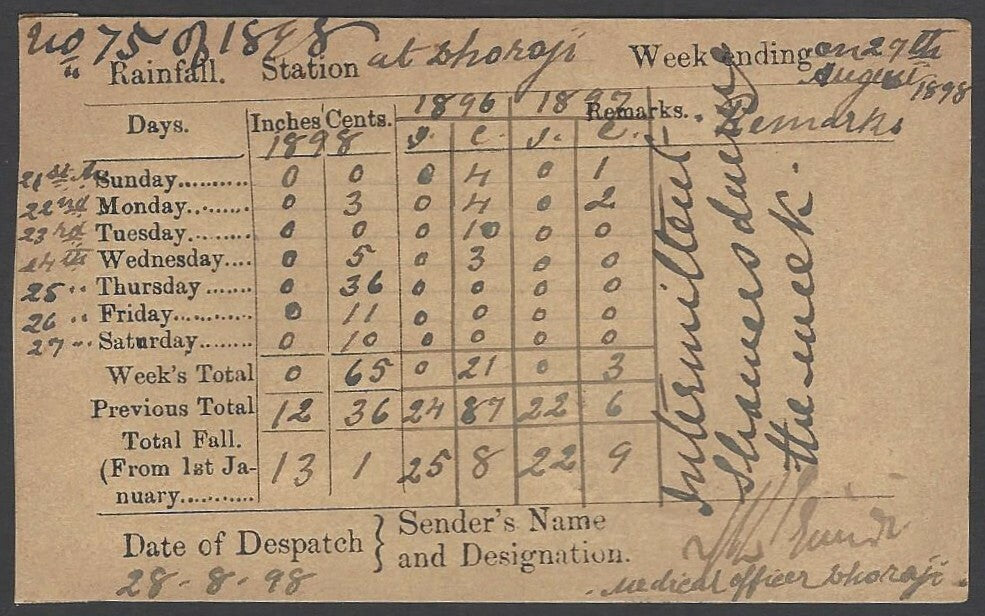 No 75 of 1898
Rainfall. Station at Dhoraji Week ending on 27th August 1898
Days. Inches Cents. 1896 1897 Remarks. Remarks
1898 I. C. I. C.
21st Sunday.......... 0 0 0 4 0 1
22nd Monday......... 0 3 0 4 0 2
23rd Tuesday......... 0 0 0 10 0 0
24th Wednesday.... 0 5 0 3 0 0
25 " Thursday ....... 0 36 0 0 0 0
26 " Friday........... 0 11 0 0 0 0
27 " Saturday........ 0 10 0 0 0 0
Week's Total 0 65 0 21 0 3
Previous Total 12 36 24 87 22 6
Total Fall.
(From 1st Ja-
nuary........... 13 1 25 8 22 9
Intermittent
Showers during
the week.
Date of Despatch } Sender's Name
and Designation.
28-8-98
Medical officer Dhoraji.